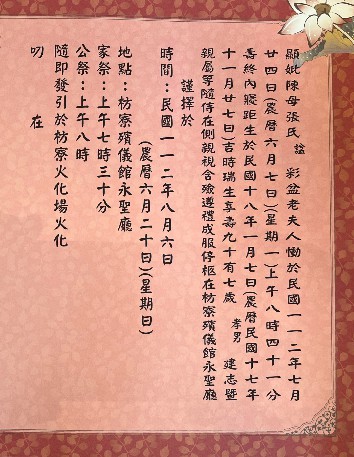 顯妣陳母張氏諡彩盆老夫人慟於民國一一二年七月
廿四日(農曆六月七日)(星期一)上午八時四十一分
壽終內寢距生於民國十八年一月七日(農曆民國十七年
十一月廿七日)吉時瑞生享壽九十有七歲 孝男 建志暨
親屬等隨侍在側親視含殮遵禮成服停柩在枋寮殯儀館永聖廳
謹擇於
時間：民國一一二年八月六日
(農曆六月二十日)(星期日)
地點：枋寮殯儀館永聖廳
家祭：上午七時三十分
公祭：上午八時
隨即發引於枋寮火化場火化
叨 在